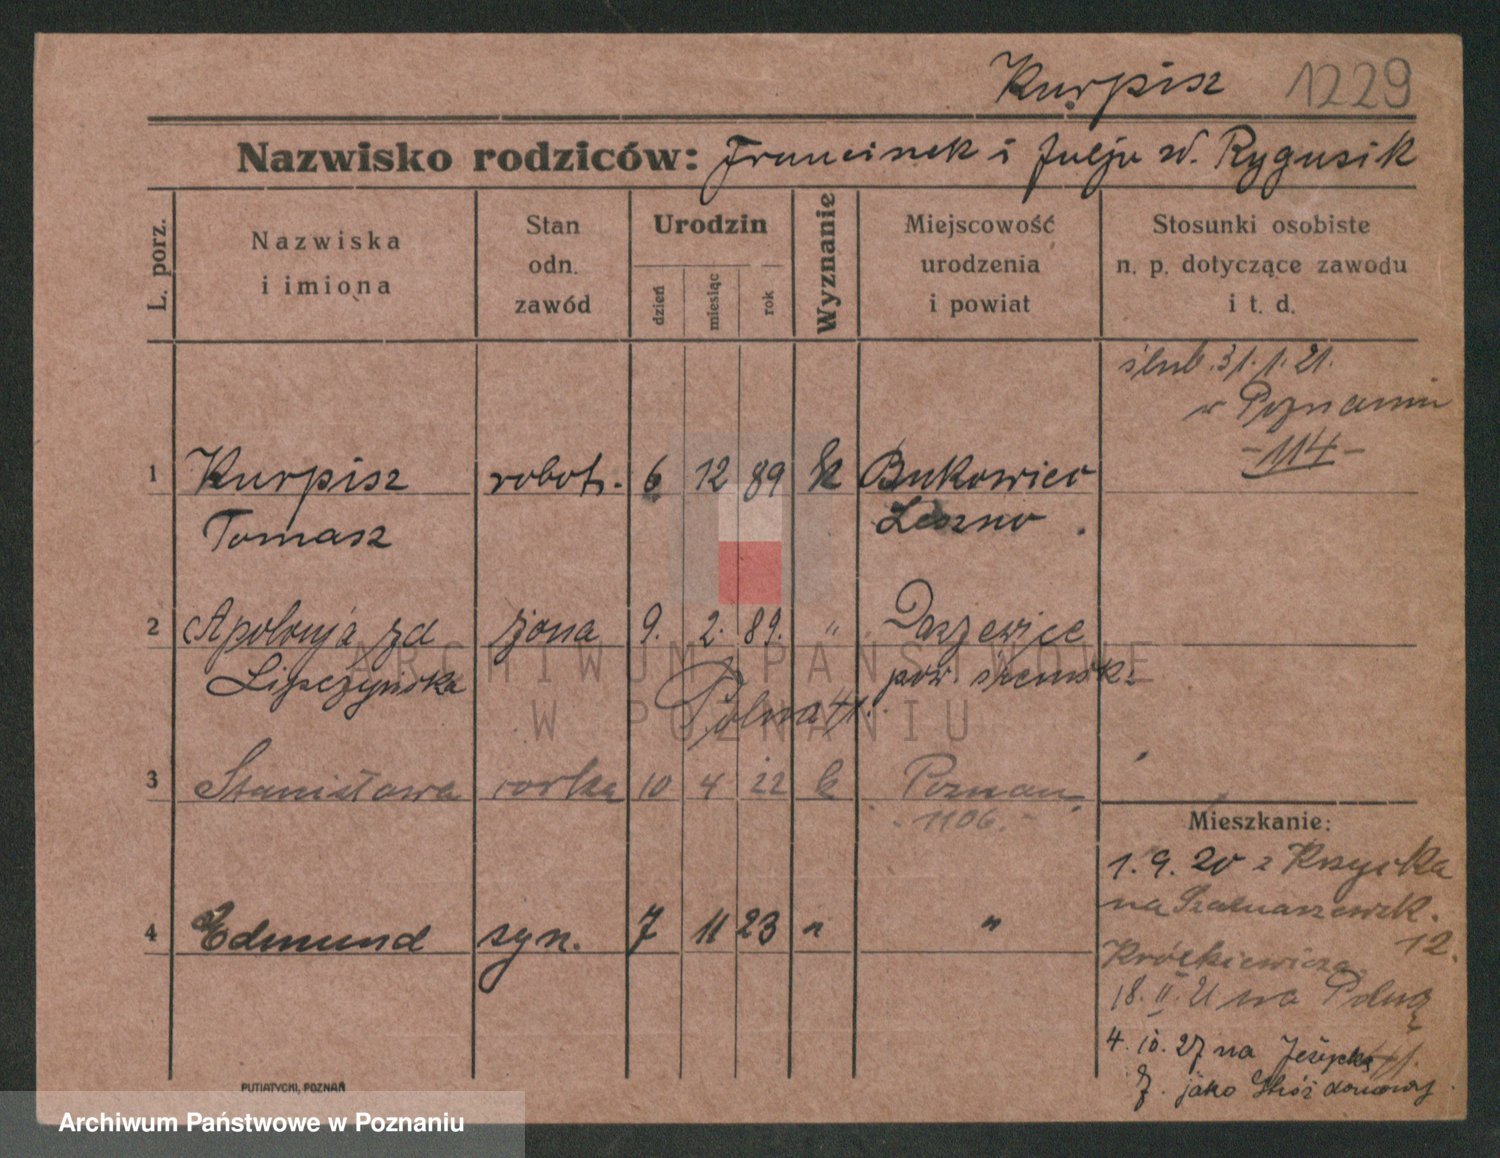 Kurpisz 1229
Nazwisko rodziców: Franciszek i Julja
L. porz.
Nazwiska
i imiona
Stan
odn.
zawód
Urodzin
dzień
miesiąc
rok
Wyznanie
Miejscowość
urodzenia
i powiat
Stosunki osobiste
n. p. dotyczące zawodu
i t. d.
ślub. 31.1.21.
w Poznaniu
-114-
1 Kurpisz robotn. 6 12 89 k Bukowiec
Tomasz Leszno
2 Apolonja zd żona 9. 2. 89. " Daszewice
Lipczyńska pow. śremski
Polna 41.
3 Stanisława corka 10 4 22 k Poznan
- 1106. -
4 Edmund syn. 7 11 23 " "
Mieszkanie:
1.9.20 z
na 12.
18.II.21 na Polną
41.
4.10.27 na Jeżycką
7. jako Stróż domowy.
PUTIATYCKI, POZNAŃ
ARCHIWUM PAŃSTWOWE
W POZNANIU
Archiwum Państwowe w Poznaniu